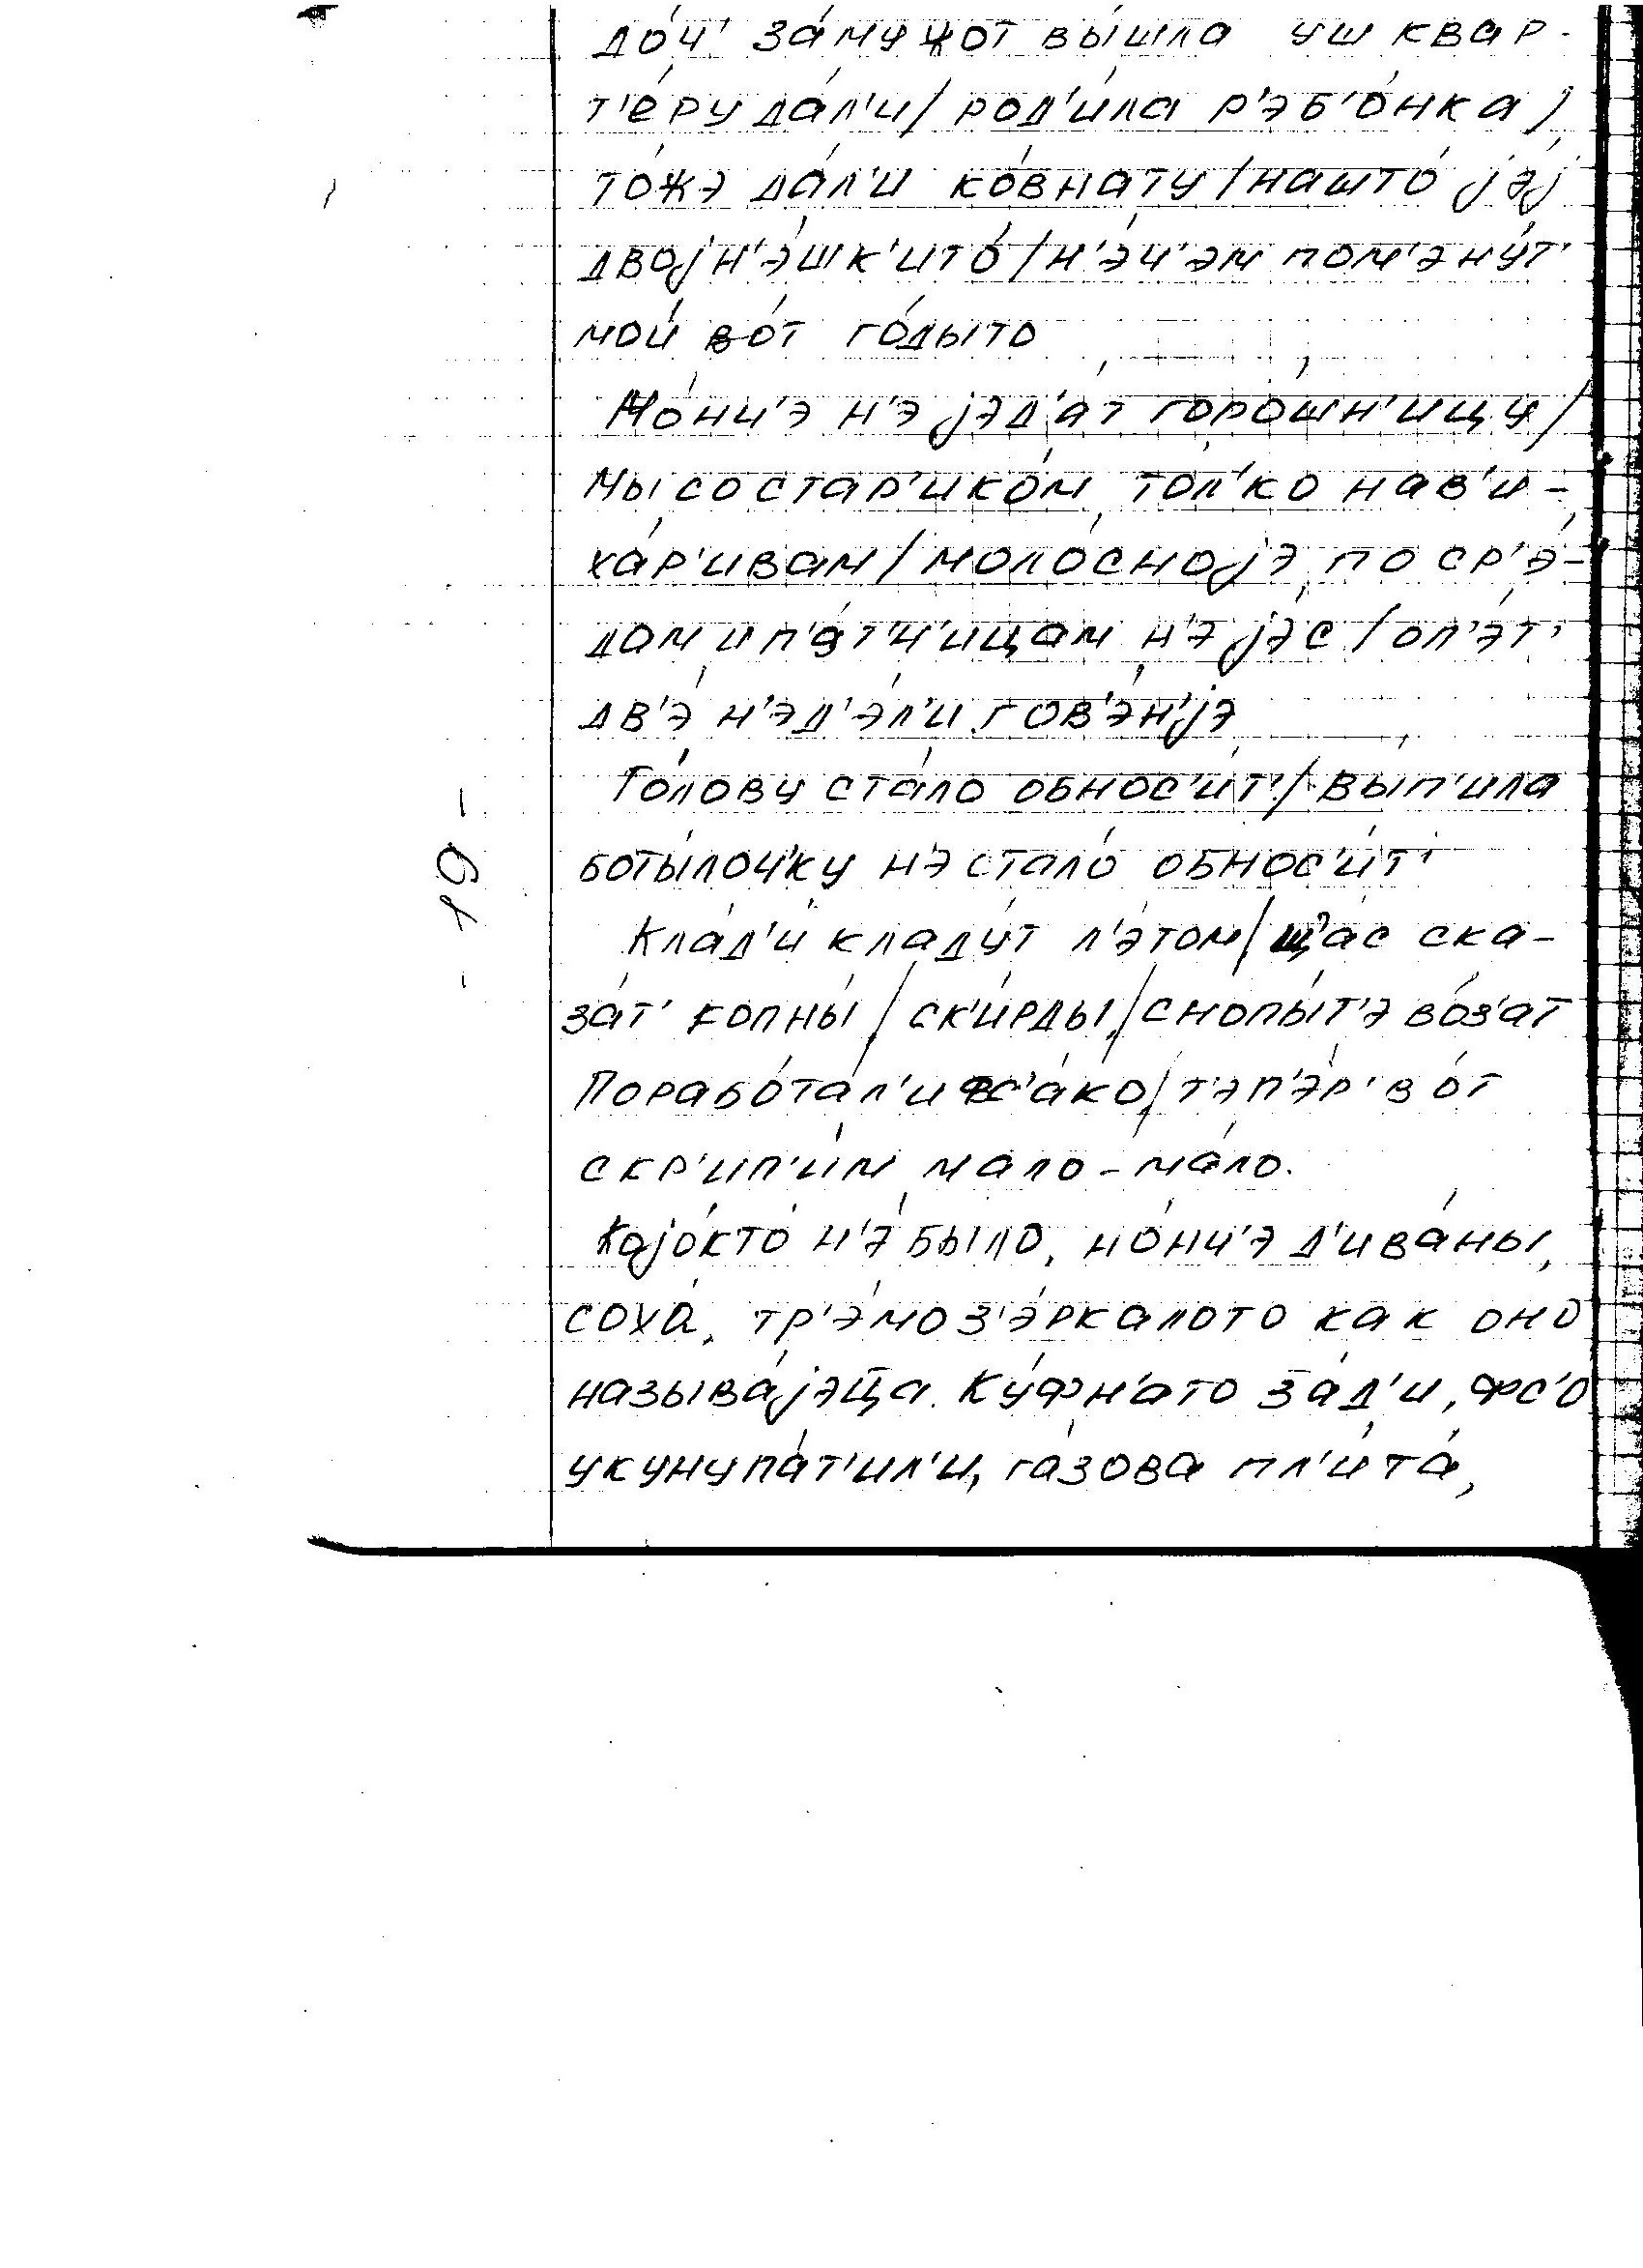 до́ч' за́мужот вы́шла уш квар-
т'е́ру да́л'и/ род'и́ла р'эб'о́нка/
то́жэ да́л'и ко́внату/нашто́ jэj
двоjн'э́шк'ито́/н'э́ч'эм пом'эну́т'
мои́ во́т го́дыто
Но́нч'э н'э jэд'а́т горо́шн'ицу/
Мы со стар'ико́м то́л'ко нав'и-
ха́р'ивам/моло́сноjэ по ср'э́-
дам и п'а́т'н'ицам н'э jэ́с/оп'э́т'
дв'э́ н'эд'э́л'и гов'э́н'jэ
Го́лову ста́ло обнос'и́т'/вы́п'ила
боты́лоч'ку н'э стало́ обнос'и́т'
Кла́д'и́ кладу́т л'э́том/щ'а́с ска-
за́т' копны́/ск'и́рды/снопы́т'э во́з'ат
Порабо́та́л'и фс'а́ко/т'эп'э́р' во́т
скр'ип'и́м мало-ма́ло.
Каjо́кто́ н'э́ было, но́нч'э д'ива́ны,
соха́, тр'э́моз'э́ркалото как оно
называ́jэца. Ку́фн'ато за́д'и, фс'о
укунупа́т'ил'и, га́зова пл'ита́,
- 19 -